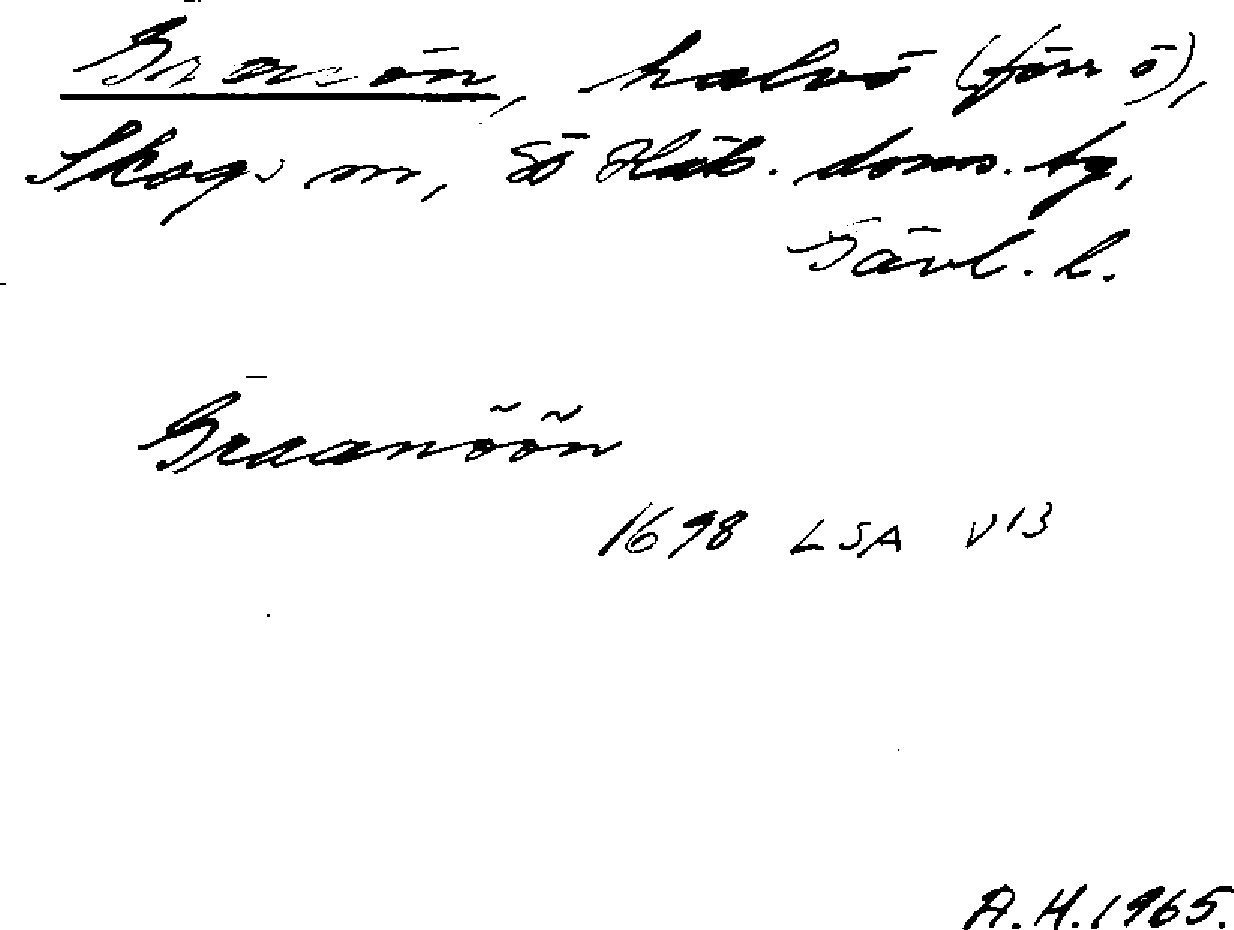 Granön, halvö (förr ö),
Skogs sn, Sö Häls. doms. by,
Gävl. l.
Graanöön
1698 LSA V13
A.H. 1965.